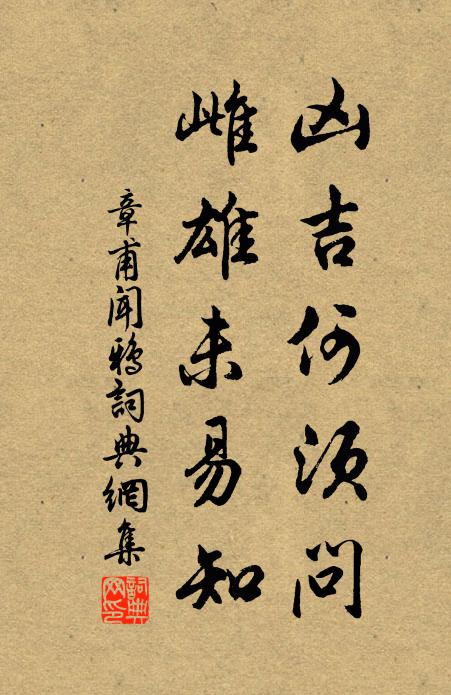 凶吉何須問
雌雄未易知
章甫聞鴉詞典網集
詞典
网印